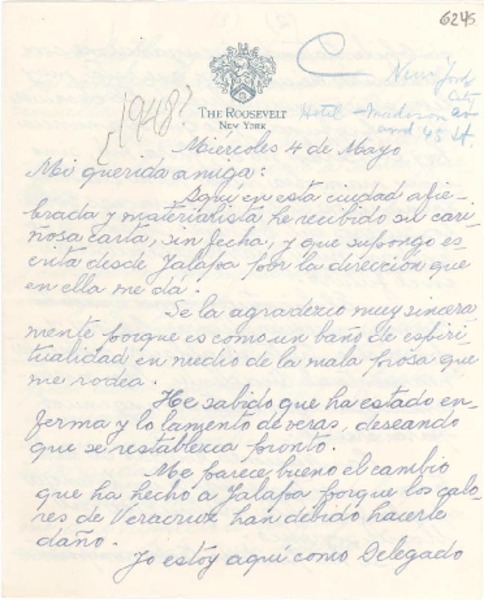 6245
C
New York
City
THE ROOSEVELT
NEW YORK
Hotel - Madison av
and 45 St.
1948?
Miércoles 4 de Mayo
Mi querida amiga:
Aquí en esta ciudad afie-
brada y materialista he recibido su cari-
ñosa carta, sin fecha, y que supongo es-
crita desde Jalapa por la dirección que
en ella me da.
Se la agradezco muy sincera
mente porque es como un baño de espiri-
tualidad en medio de la mala prosa que
me rodea.
He sabido que ha estado en-
ferma y lo lamento de veras, deseando
que se restablezca pronto.
Me parece bueno el cambio
que ha hecho a Jalapa porque los calo-
res de Veracruz han debido hacerle
daño.
Yo estoy aquí como Delegado